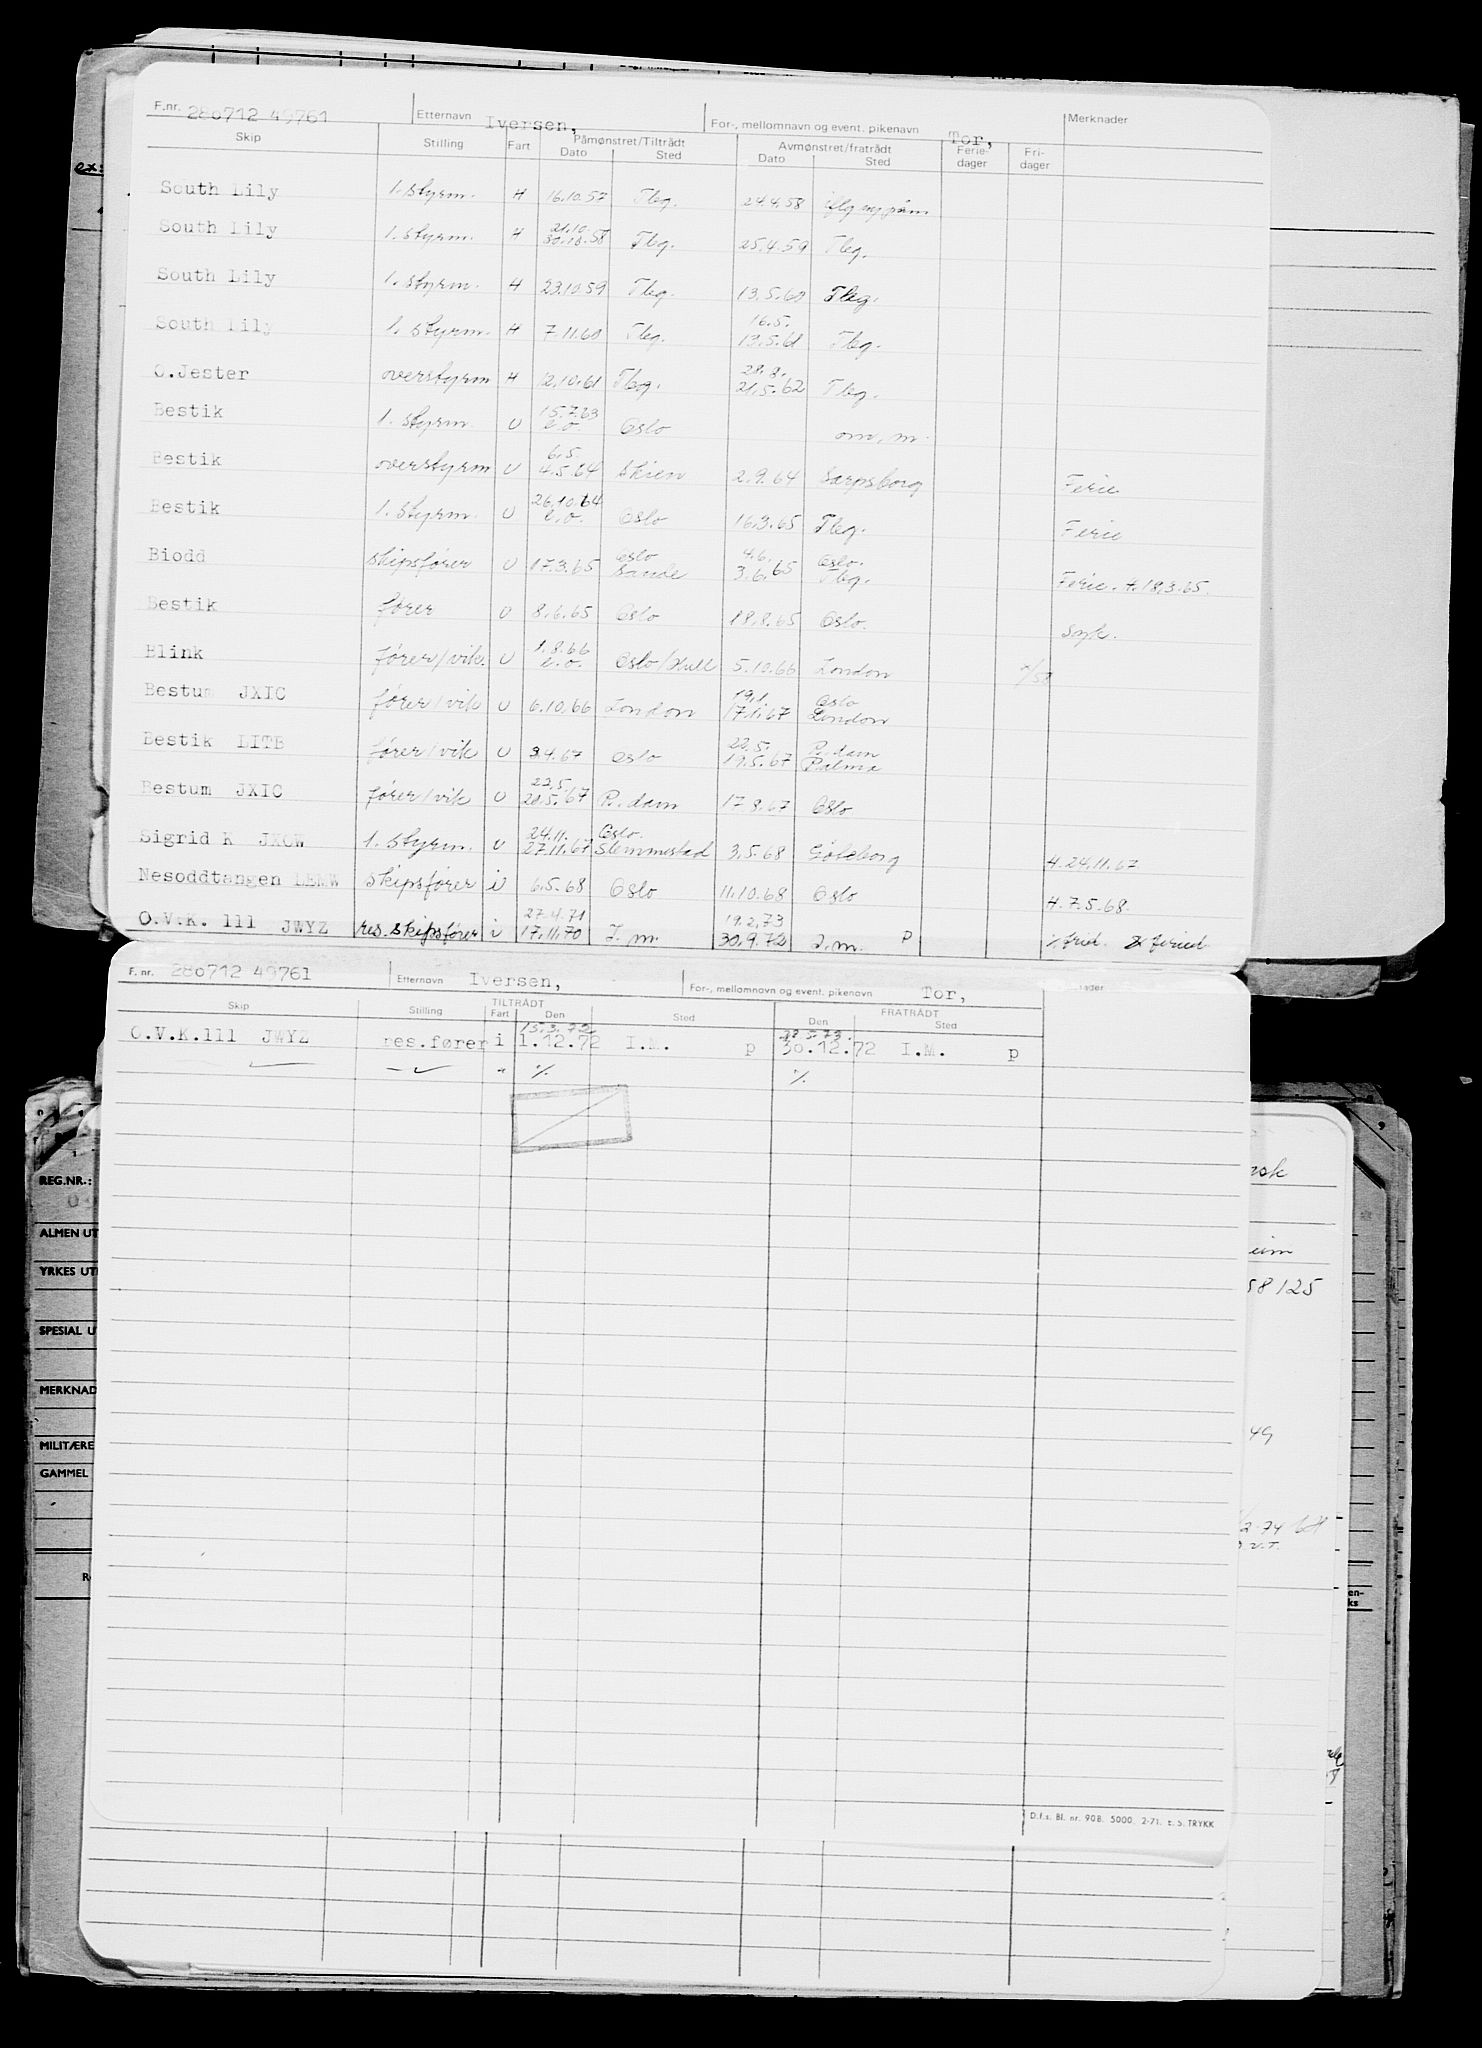 F.nr. 280712 49761 Etternavn Iversen, For-, mellomnavn og event. pikenavn Tor, Merknader
Skip Stilling Fart Påmønstret/Tiltrådt Dato Sted Avmønstret/fratrådt Dato Sted Ferie-dager Fri-dager
South Lily 1. styrm. H 16.10.57 Tbg. 24.4.58 iflg ny påm
South Lily 1. styrm. H 21.10. 30.10.58 Tbg. 25.4.59 Tbg.
South Lily 1. styrm. H 23.10.59 Tbg. 13.5.60 Tbg.
South Lily 1. styrm. H 7.11.60 Tbg. 16.5. 13.5.61 Tbg.
O.Jester overstyrm H 12.10.61 Tbg. 28.8. 21.5.62 Tbg.
Bestik 1. styrm. U 15.7.63 e.o. Oslo om. m.
Bestik overstyrm U 6.5. 4.5.64 Skien 2.9.64 Sarpsborg Ferie
Bestik 1. styrm. U 26.10.64 e.o. Oslo 16.3.65 Tbg. Ferie
Biodd skipsfører U 17.3.65 Oslo Sande 4.6. 3.6.65 Oslo. Tbg. Ferie. t.18.3.65.
Bestik fører U 8.6.65 Oslo 18.8.65 Oslo. Syk.
Blink fører/vik. U 1.8.66 e.o. Oslo/Hull 5.10.66 London
Bestum JXIC fører/vik U 6.10.66 London 19.1. 17.1.67 Oslo London
Bestik LITB fører/vik U 3.4.67 Oslo 22.5. 19.5.67 R.dam Palma
Bestum JXIC fører/vik U 23.5. 20.5.67 R.dam 17.8.67 Oslo
Sigrid K JXOW 1. styrm. U 24.11. 27.11.67 Oslo. Slemmestad 3.5.68 Göteborg t.24.11.67
Nesoddtangen LEMW skipsfører i 6.5.68 Oslo 11.10.68 Oslo t.7.5.68.
O.V.K. 111 JWYZ res. skipsfører i 27.4.71 17.11.70 I.m. 19.2.73 30.9.72 I.m. P
F. nr. 280712 49761 Etternavn Iversen, For-, mellomnavn og event. pikenavn Tor,
Skip Stilling TILTRÅDT Fart Den Sted FRATRÅDT Den Sted
O.V.K.111 JWYZ res.fører i 13.3.72 1.12.72 I.M. p 28.5.73. 30.12.72 I.M. p
REG.NR.:
ALMEN UT
YRKES UT
SPESIAL U
MERKNAD
MILITÆRE
GAMMEL
58125
49
D.f.s. Bl. nr. 908. 5000. 2-71. E. S. TRYKK